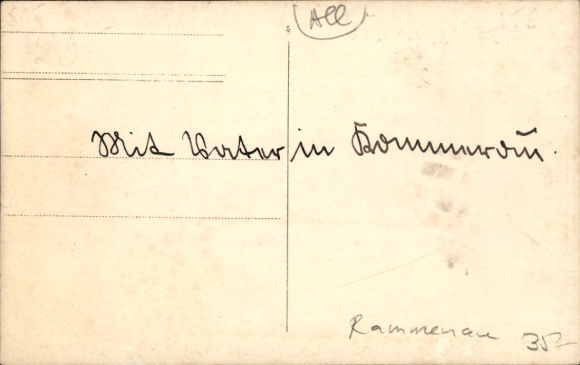 All
Mit Vater in Rammenau.
Rammenau
35-